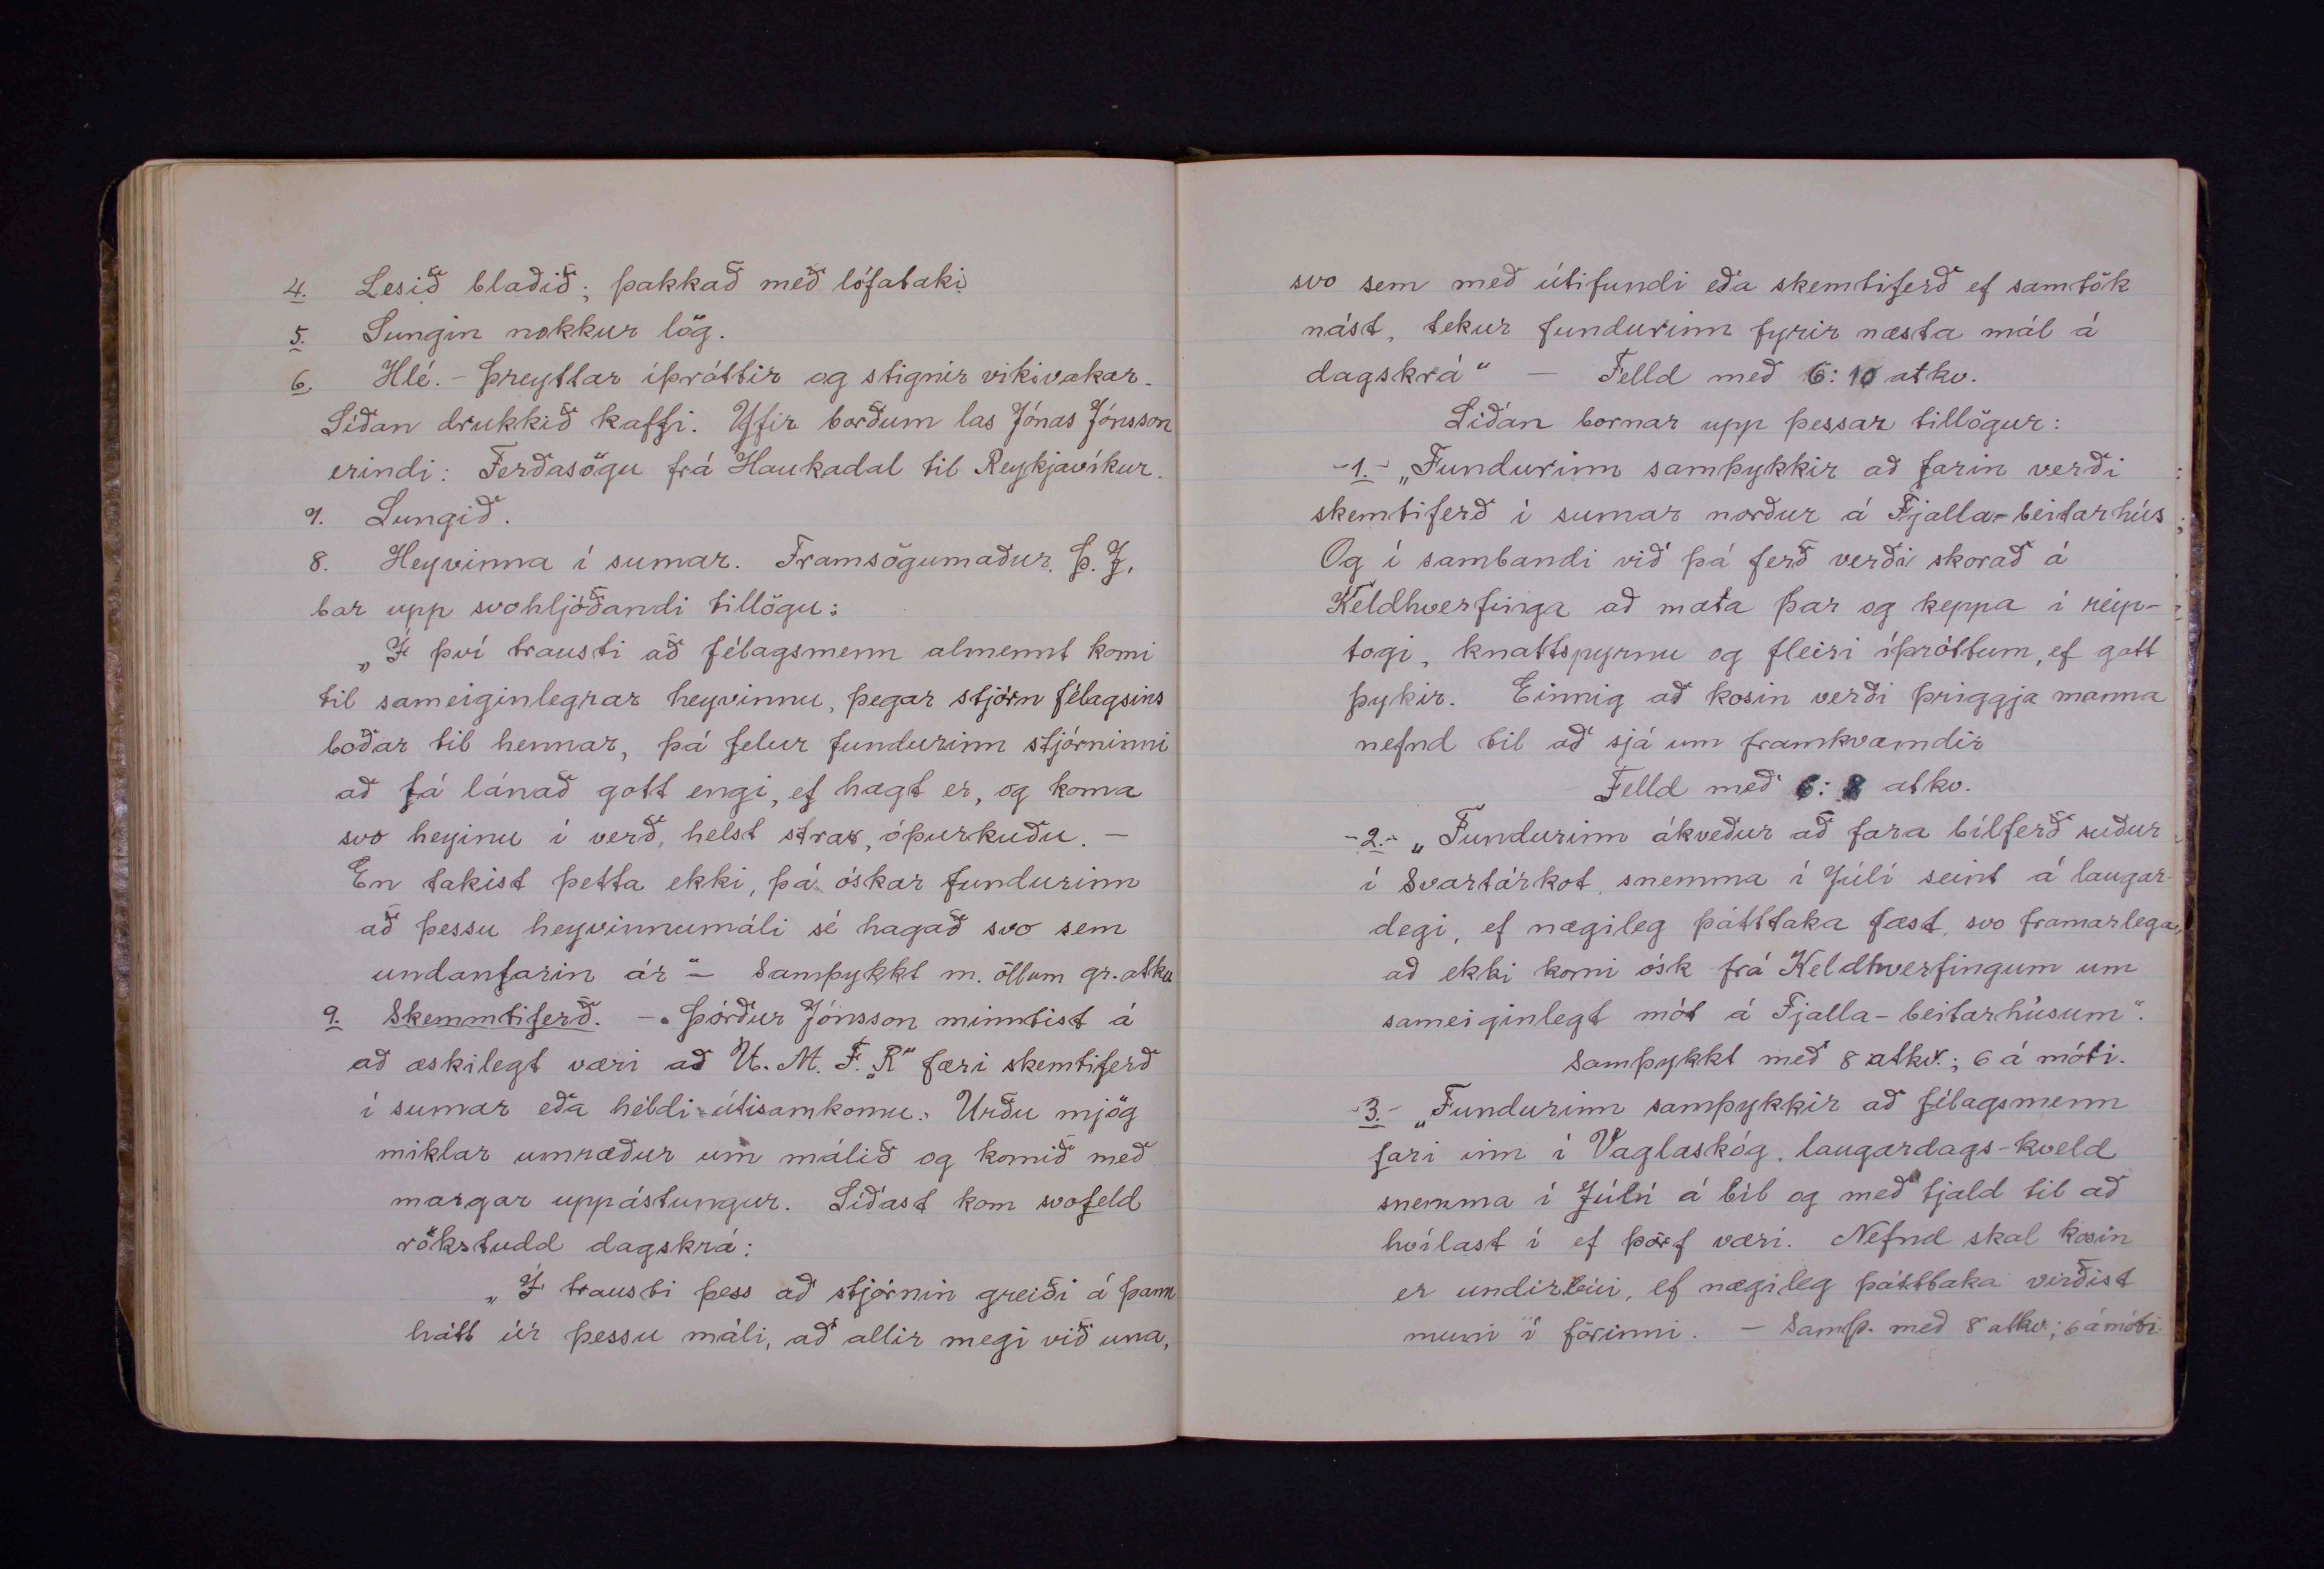 4. Lesið blaðið; þakkað með lófataki.
5. Sungin nokkur lög.
6. Hlé. - Þreyttar íþróttir og stignir vikivakar.
Síðan drukkið kaffi. Yfir borðum las Jónas Jónsson
erindi: Ferðasögu frá Haukadal til Reykjavíkur.
7. Sungið.
8. Heyvinna í sumar. Framsögumaður. Þ. J.
bar upp svohljóðandi tillögu:
„Í því trausti að félagsmenn almennt komi
til sameiginlegrar heyvinnu, þegar stjórn félagsins
boðar til hennar, þá felur fundurinn stjórninni
að fá lánað gott engi, ef hægt er, og koma
svo heyinu í verð, helst strax, óþurkuðu. -
En takist þetta ekki, þá óskar fundurinn
að þessu heyvinnumáli sé hagað svo sem
undanfarin ár" - Samþykkt m. öllum gr. atkv
9. Skemmtiferð. - Þórður Jónsson minntist á
að æskilegt væri að U. M. F. „R" færi skemtiferð
í sumar eða héldi útisamkomu. Urðu mjög
miklar umræður um málið og komið með
margar uppástungur. Síðast kom svofeld
rökstudd dagskrá:
„Í trausti þess að stjórnin greiði á þann
hátt úr þessu máli, að allir megi við una,
svo sem með útifundi eða skemtiferð ef samtök
nást, tekur fundurinn fyrir næsta mál á
dagskrá" - Felld með 6:10 atkv.
Síðan bornar upp þessar tillögur:
-1.- „Fundurinn samþykkir að farin verði
skemtiferð í sumar norður á Fjalla-beitarhús
Og í sambandi við þá ferð verði skorað á
Keldhverfinga að mæta þar og keppa í reip-
togi, knattspyrnu og fleiri íþróttum, ef gott
þykir. Einnig að kosin verði þriggja manna
nefnd til að sjá um framkvæmdir
Felld með 6:8 atkv.
-2.- „Fundurinn ákveður að fara bílferð suður
í Svartárkot, snemma í Júlí seint á laugar-
degi, ef nægileg þátttaka fæst, svo framarlega,
að ekki komi ósk frá Keldhverfingum um
sameiginlegt mót á Fjalla-beitarhúsum".
Samþykkt með 8 atkv.; 6 á móti.
-3.- „Fundurinn samþykkir að félagsmenn
fari inn í Vaglaskóg, laugardags-kveld
snemma í Júlí á bíl og með tjald til að
hvílast í ef þörf væri. Nefnd skal kosin
er undirbúi, ef nægileg þátttaka virðist
muni í förinni. - Samþ. með 8 atkv.; 6 á móti.